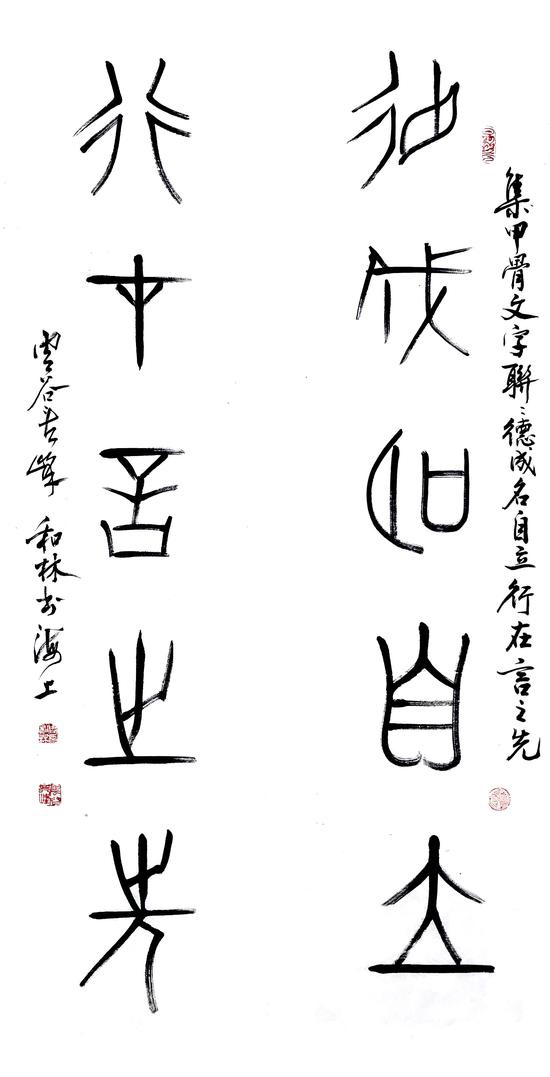 集甲骨文字聯：德成名自立行在言之先
德成名自立
行在言之先
和林书海上